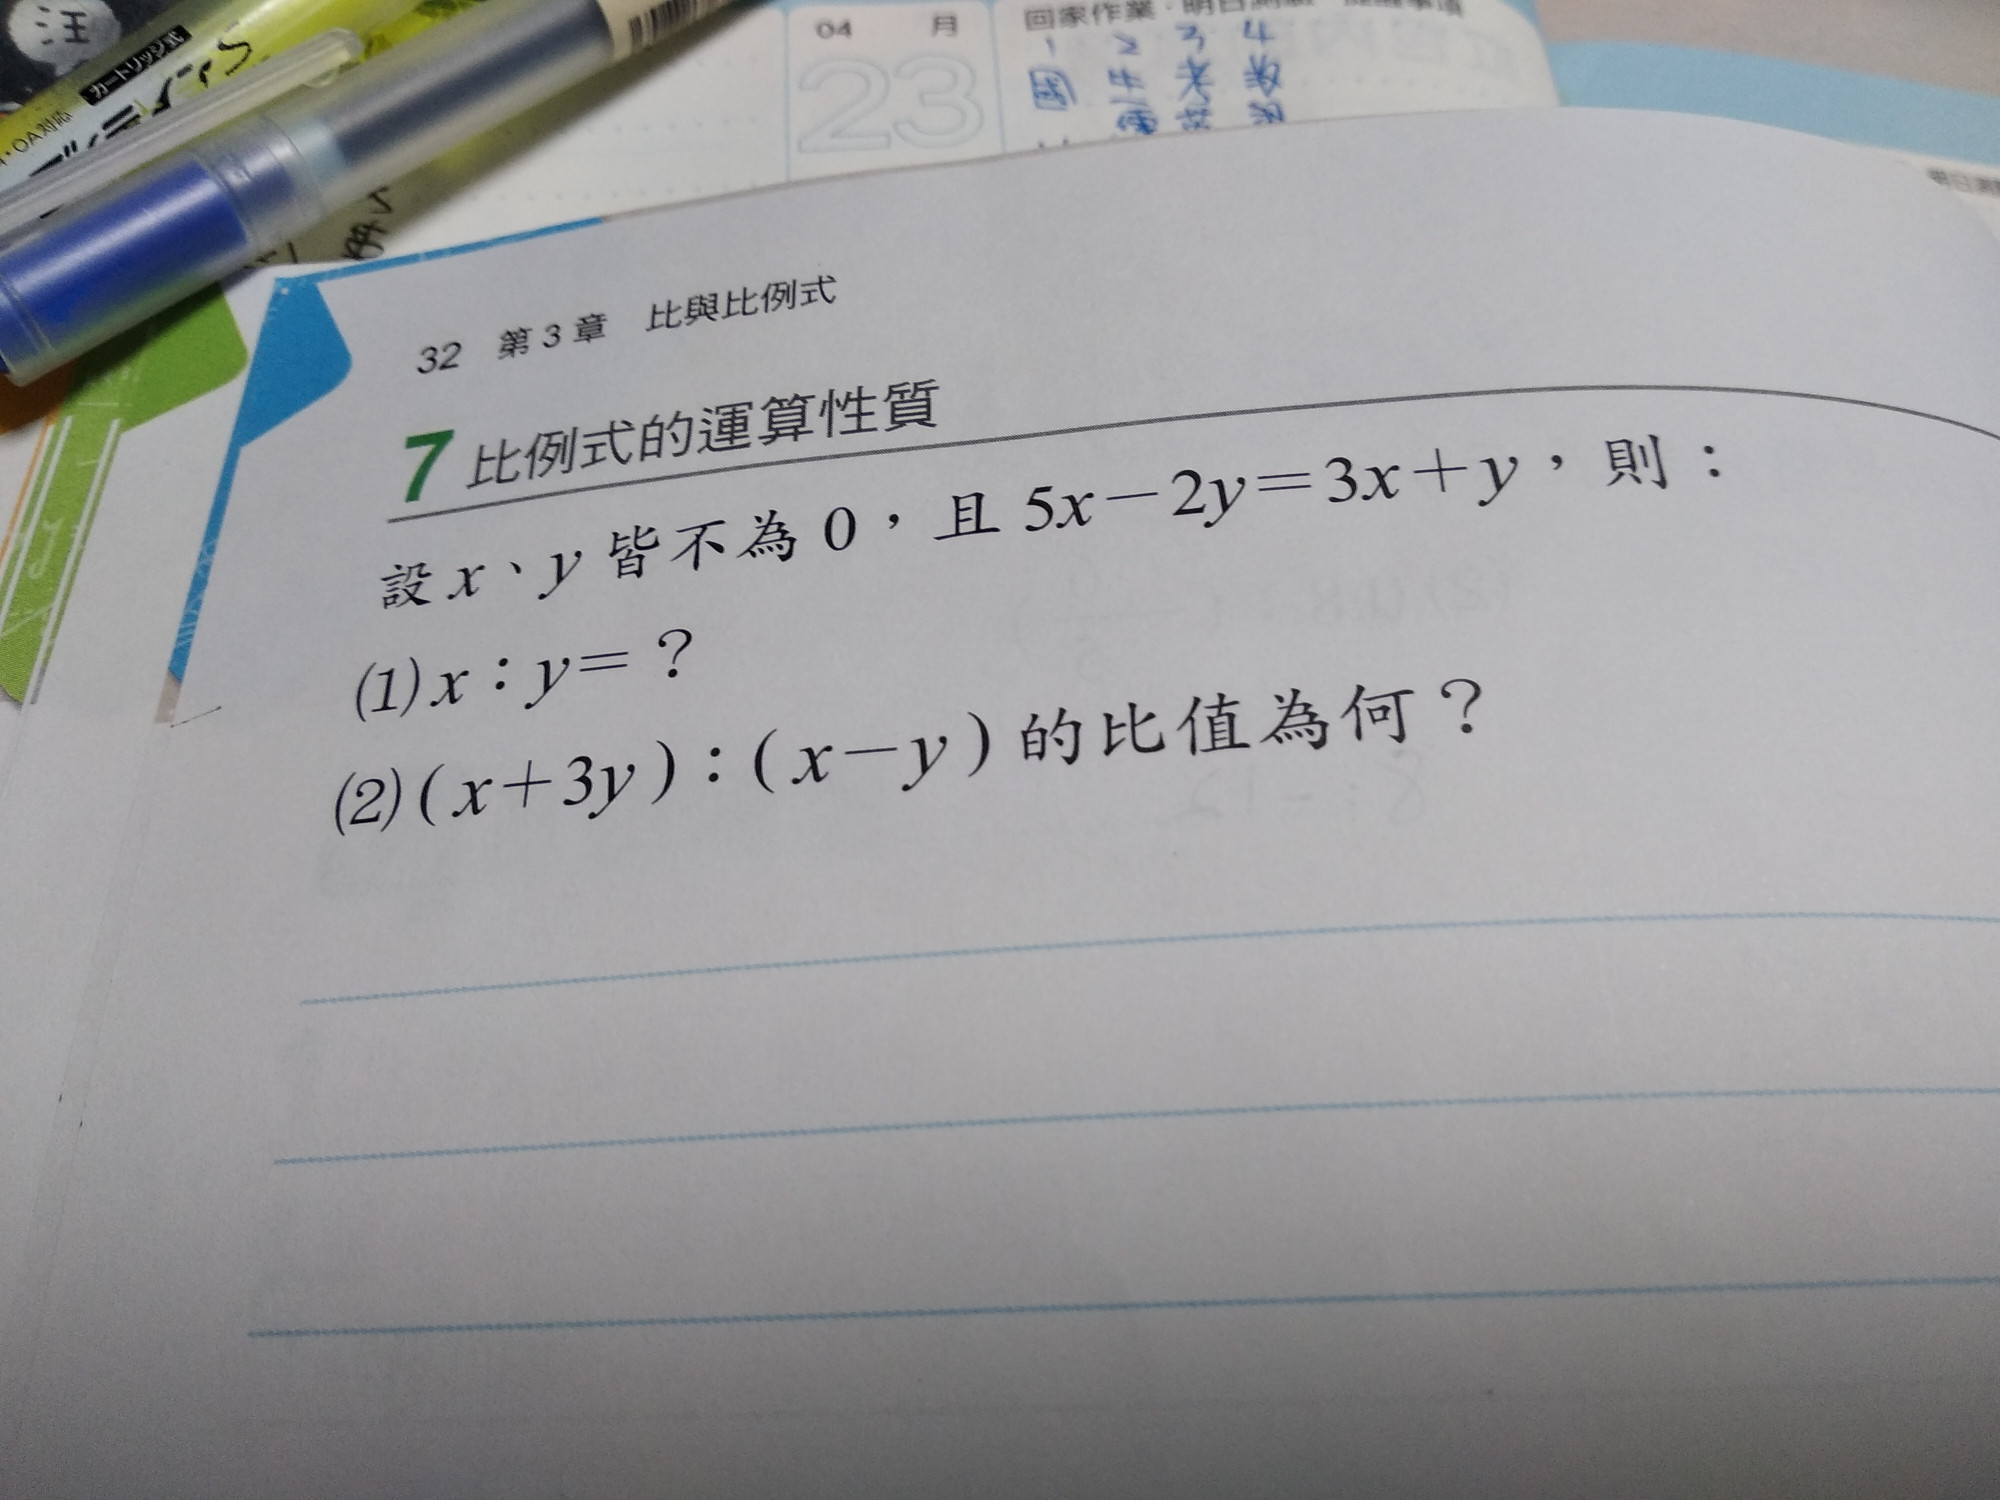 汪
カートリッジ式
OA対応
04 月
23
回家作業
1 2 3 4
國 生 考 数
英
32 第3章 比與比例式
7 比例式的運算性質
設 x、y 皆不為 0，且 5x－2y＝3x＋y，則：
(1) x：y＝？
(2) (x＋3y)：(x－y) 的比值為何？